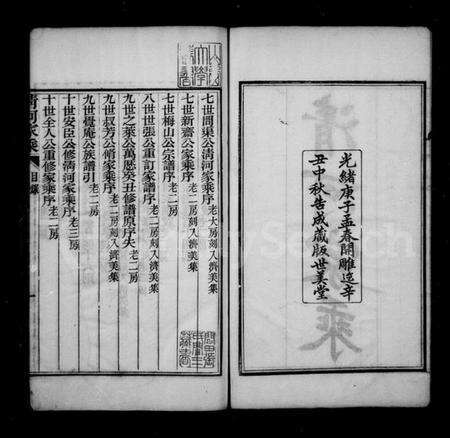 光緒庚子孟春開雕迄辛
丑中秋告成藏版世美堂
七世閒渠公清河家乘序 老大房刻入濟美集
七世新齋公家乘序 老二房刻入濟美集
七世梅山公宗譜序 老二房
八世世張公重訂家譜序 老二房刻入濟美集
九世之萊公萬厯癸丑修譜原序失 老二房
九世叔芳公脩家乘序 老二房刻入濟美集
九世覺庵公族譜引 老二房
十世安臣公修清河家乘序 老三房
十世全人公重修家乘序 老二房
清河家乘 目錄